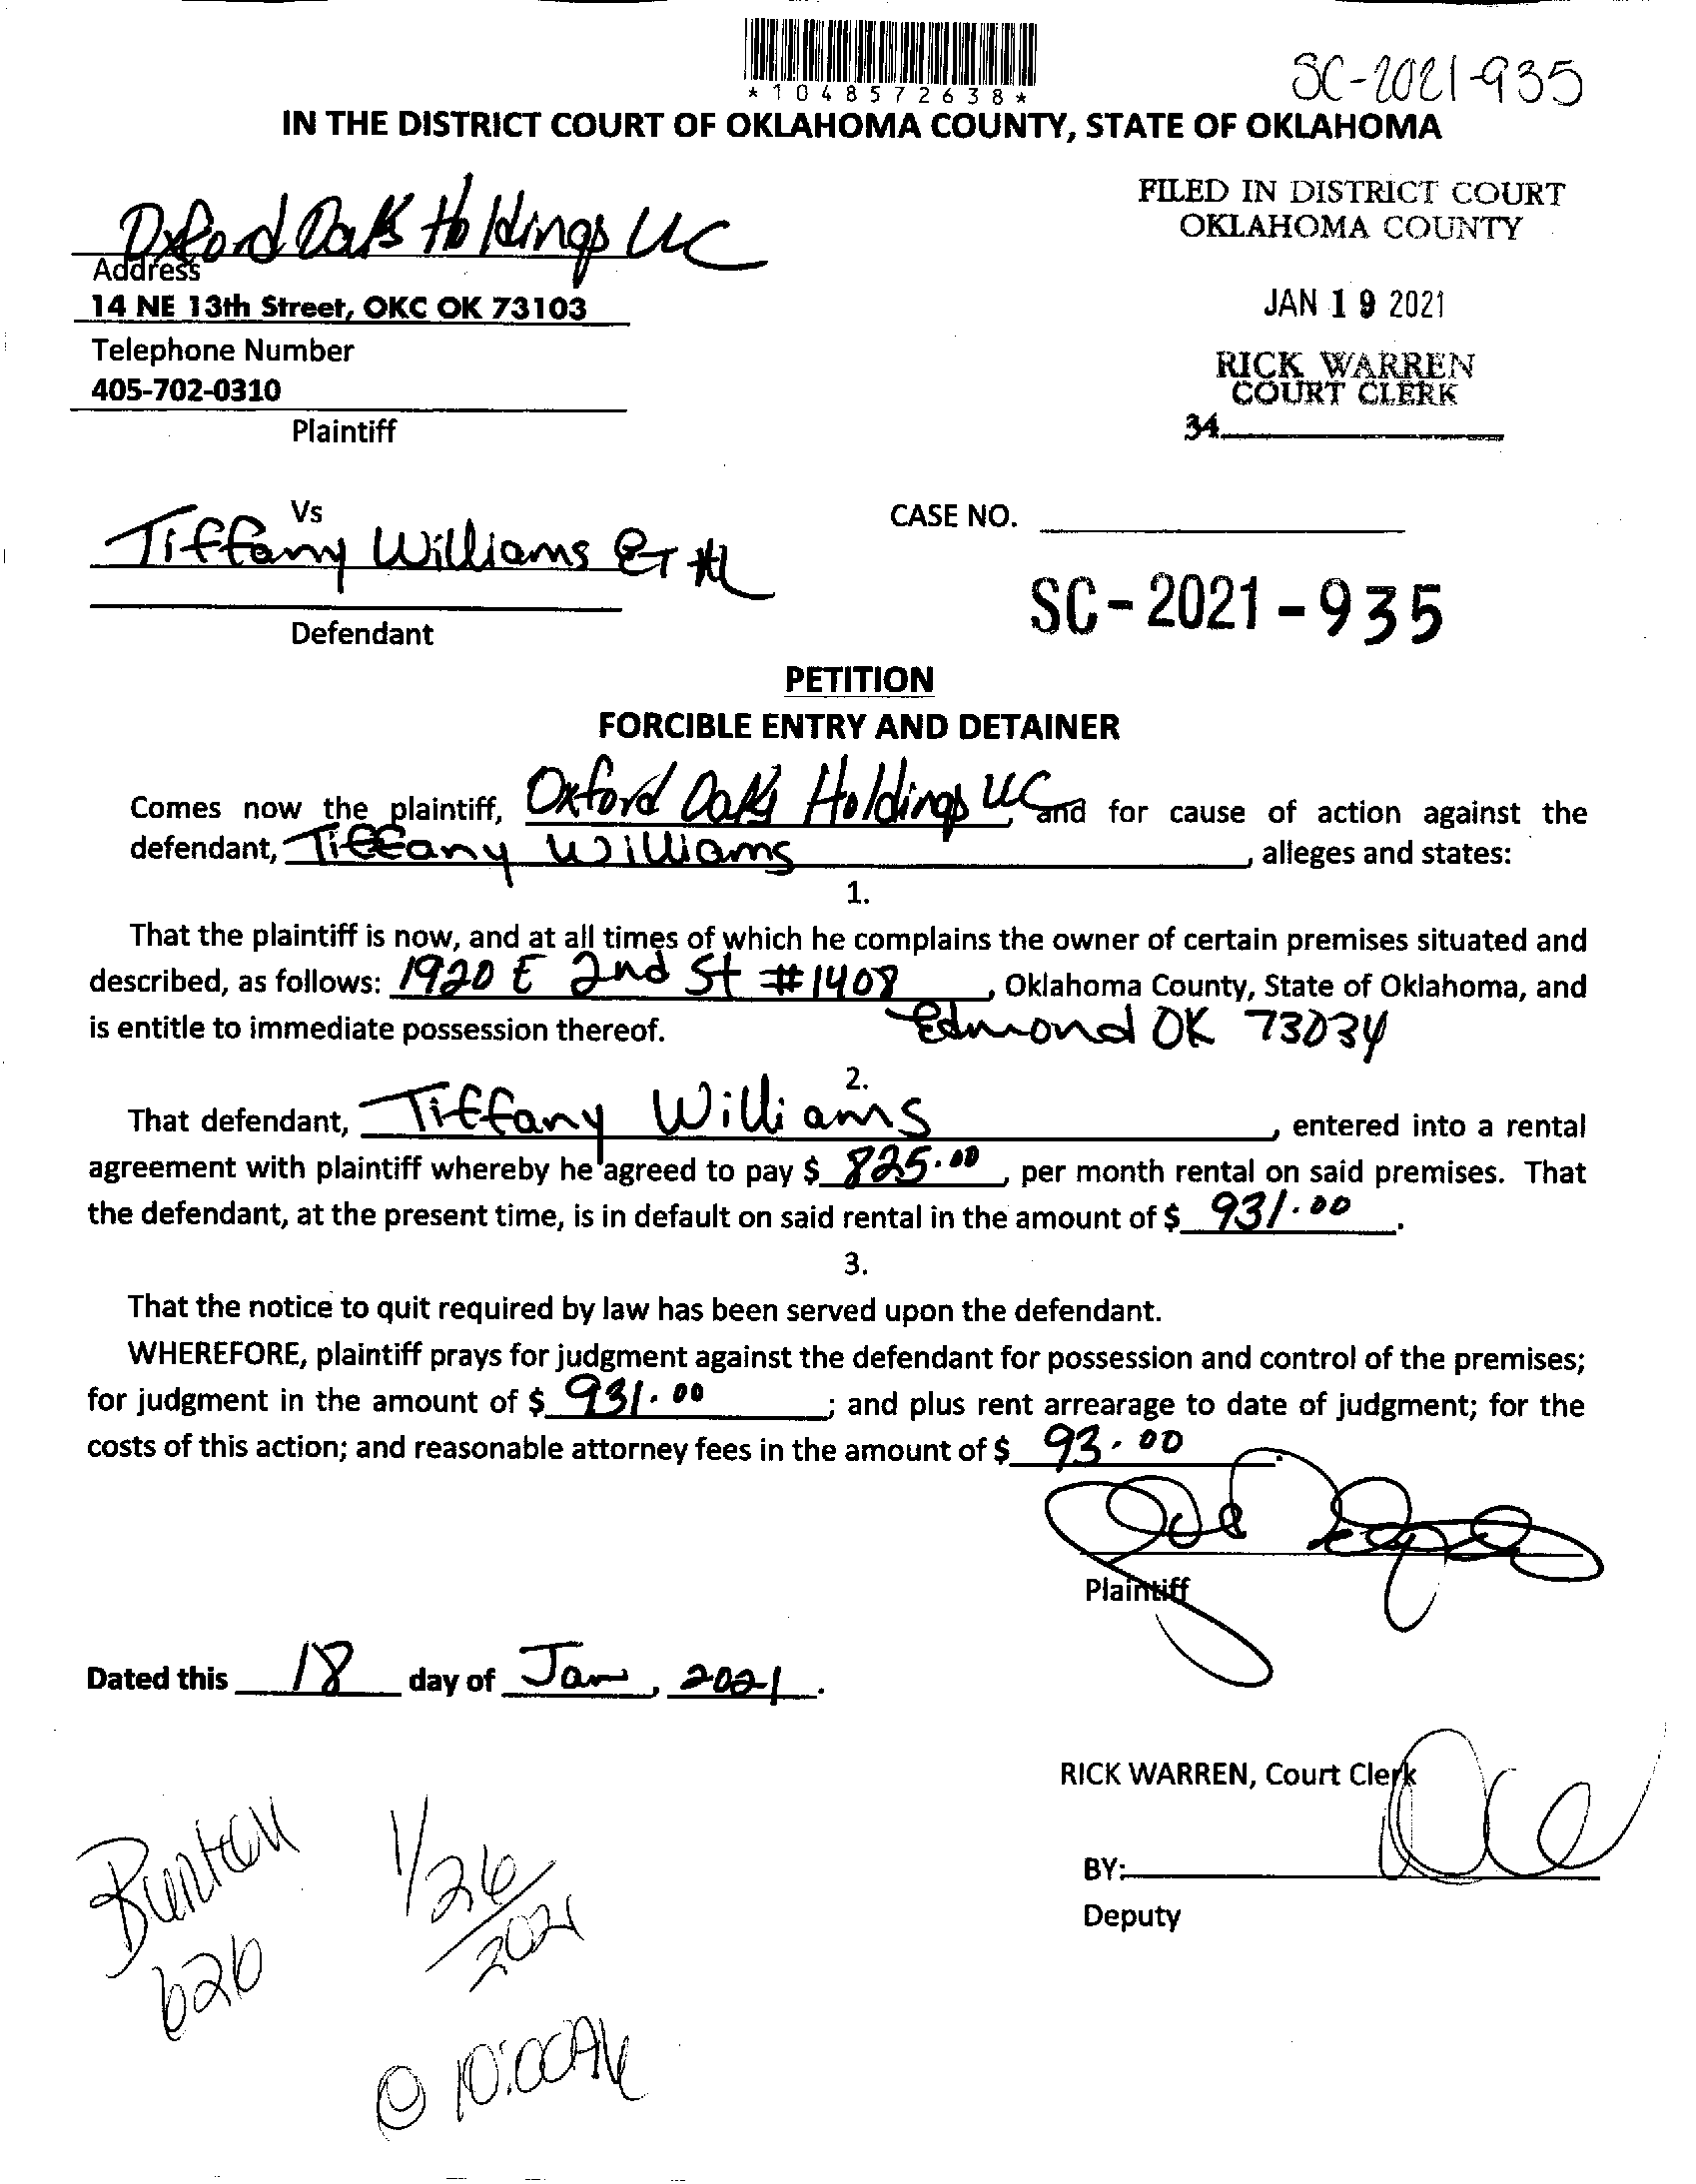 *1048572638*
SC-2021-935
IN THE DISTRICT COURT OF OKLAHOMA COUNTY, STATE OF OKLAHOMA
Oxford Oaks Holdings LLC
Address
14 NE 13th Street, OKC OK 73103
Telephone Number
405-702-0310
Plaintiff
FILED IN DISTRICT COURT
OKLAHOMA COUNTY
JAN 19 2021
RICK WARREN
COURT CLERK
34
Vs
Tiffany Williams ET AL
Defendant
CASE NO.
SC-2021-935
PETITION
FORCIBLE ENTRY AND DETAINER
Comes now the plaintiff, Oxford Oaks Holdings LLC, and for cause of action against the
defendant, Tiffany Williams, alleges and states:
1.
That the plaintiff is now, and at all times of which he complains the owner of certain premises situated and
described, as follows: 1920 E 2nd St #1408, Oklahoma County, State of Oklahoma, and
is entitle to immediate possession thereof. Edmond OK 73034
2.
That defendant, Tiffany Williams, entered into a rental
agreement with plaintiff whereby he agreed to pay $ 825.00, per month rental on said premises. That
the defendant, at the present time, is in default on said rental in the amount of $ 931.00.
3.
That the notice to quit required by law has been served upon the defendant.
WHEREFORE, plaintiff prays for judgment against the defendant for possession and control of the premises;
for judgment in the amount of $ 931.00; and plus rent arrearage to date of judgment; for the
costs of this action; and reasonable attorney fees in the amount of $ 93.00.
Plaintiff
Dated this 18 day of Jan, 2021.
RICK WARREN, Court Clerk
BY:
Deputy
626
1/26/2021
@ 10:00AM